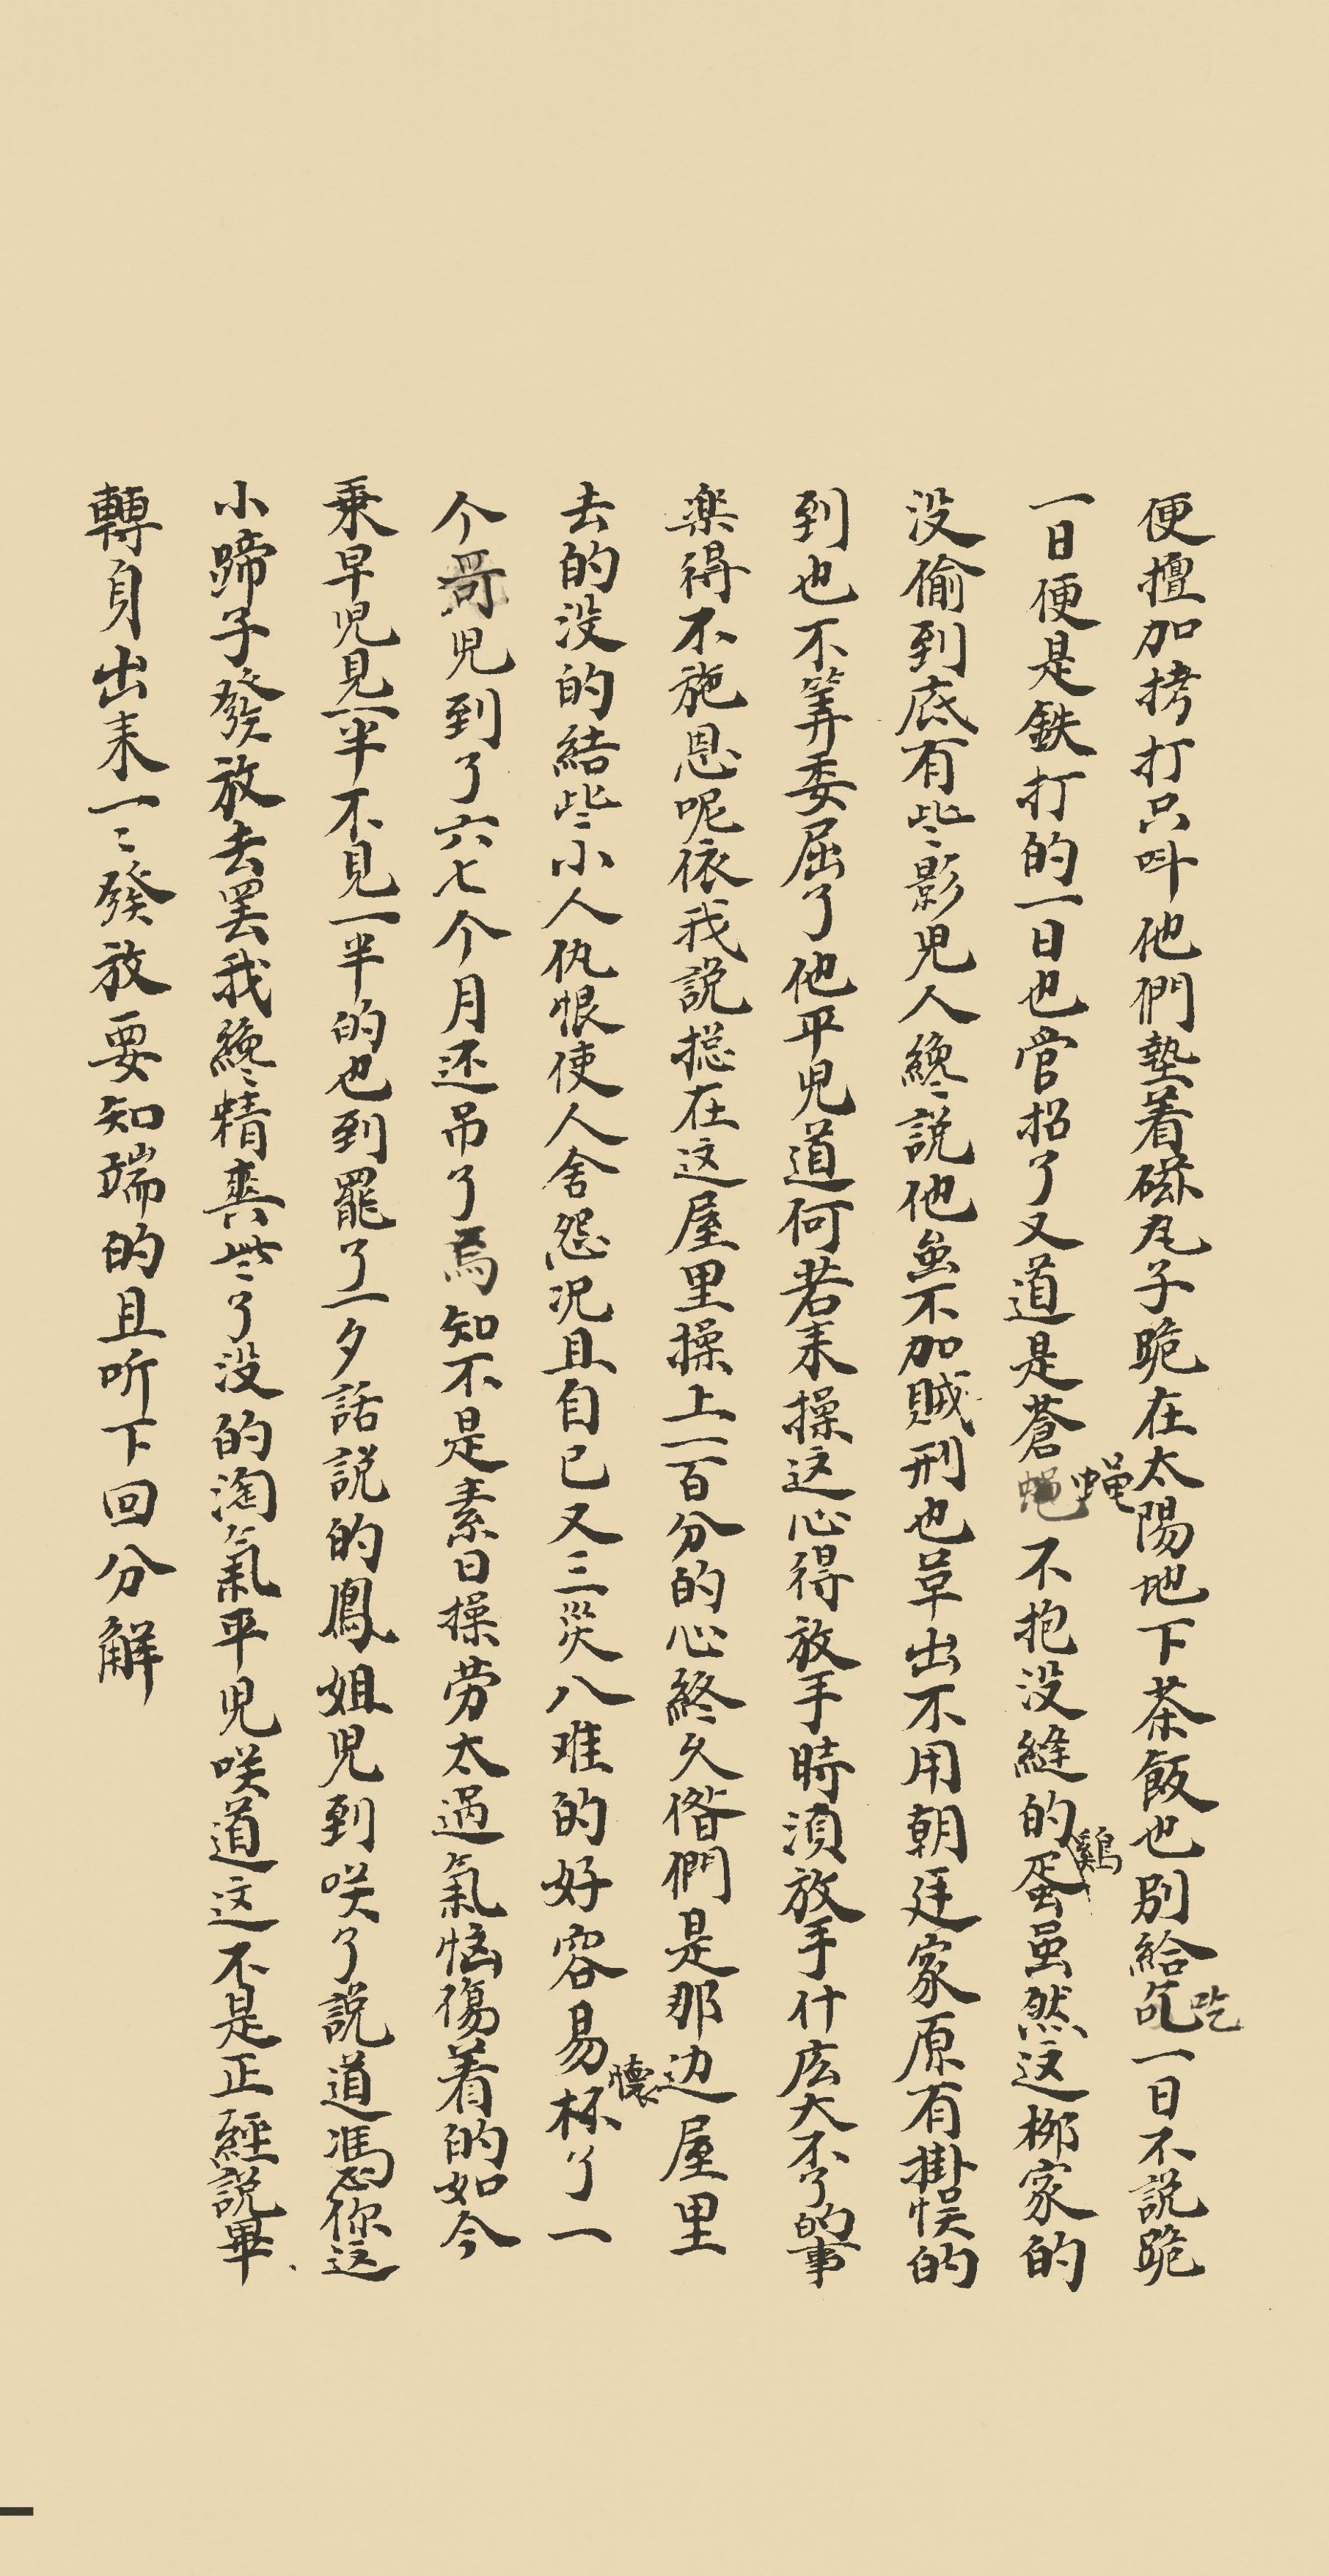 便擅加拷打只呌他們墊着磁瓦子跪在太陽地下茶飯也別給吃一日不說跪
一日便是鉄打的一日也管招了又道是蒼蝇不抱没縫的鷄蛋虽然这栁家的
没偷到底有些影児人纔說他虽不加賊刑也草出不用朝廷家原有掛悮的
到也不筭委屈了他平児道何若来操这心得放手時湏放手什庅大不了的事
楽得不施恩呢依我說摠在这屋里操上一百分的心終久偺們是那边屋里
去的没的結些小人仇恨使人舍怨况且自己又三災八难的好容易懷了一
个哥児到了六七个月还吊了焉知不是素日操劳太過氣恼傷着的如今
乗早児見一半不見一半的也到罷了一夕話說的鳳姐児到咲了說道凴你这
小蹄子發放去罢我纔精爽些了没的淘氣平児咲道这不是正經說畢
轉身出来一一發放要知端的且听下回分解